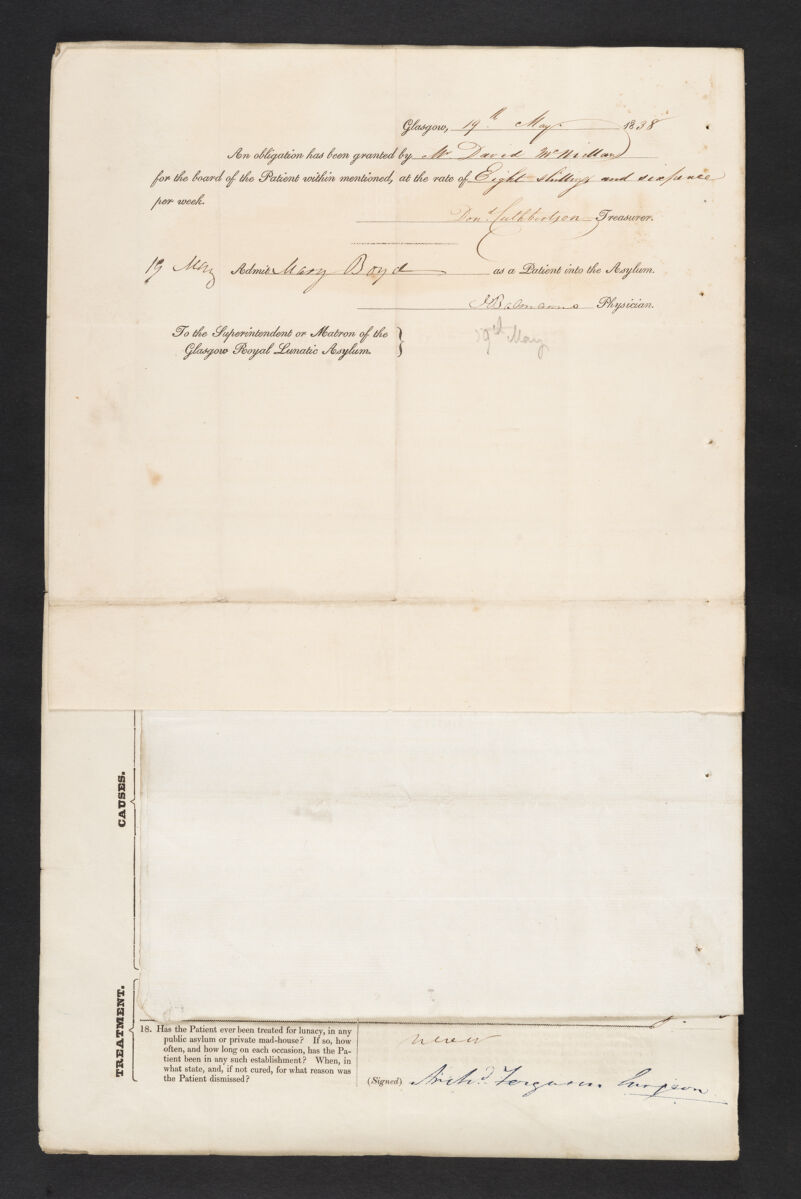 Glasgow, 19th May 1838
An obligation has been granted by Mr David
for the board of the Patient within mentioned, at the rate of Eight shillings and sixpence
per week.
Don. Cuthbertson Treasurer.
19 May Admit Mary Boyd as a Patient into the Asylum.
J Balmanno Physician.
To the Superintendent or Matron of the
Glasgow Royal Lunatic Asylum.
19th May
CAUSES.
TREATMENT.
18. Has the Patient ever been treated for lunacy, in any
public asylum or private mad-house? If so, how
often, and how long on each occasion, has the Pa-
tient been in any such establishment? When, in
what state, and, if not cured, for what reason was
the Patient dismissed?
never
(Signed) Archd. Ferguson Surgeon